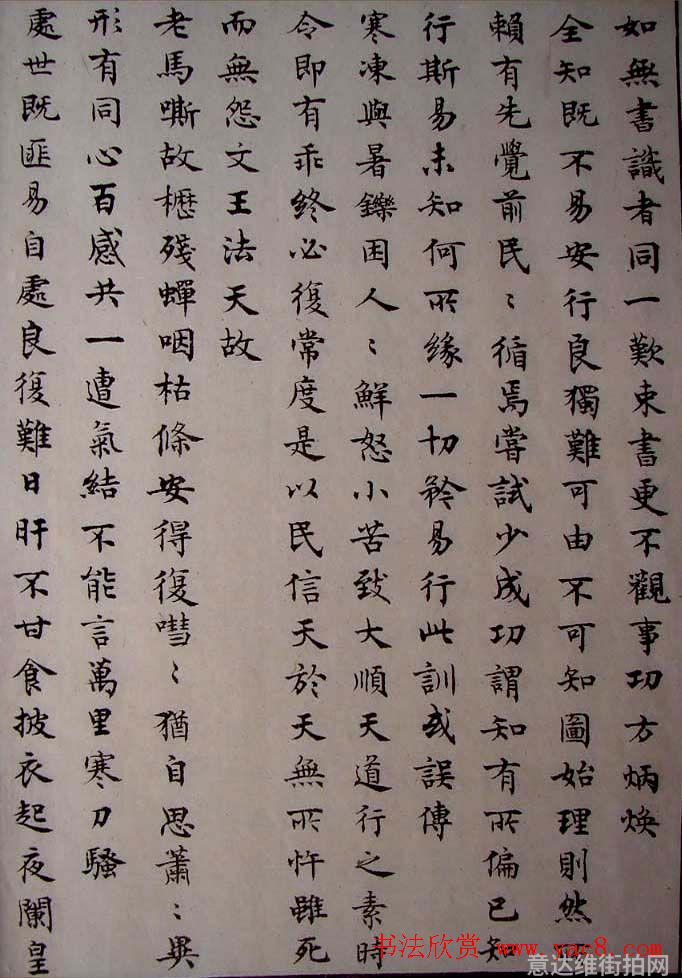 如無書識者同一歎束書更不觀事功方炳煥
全知既不易安行良獨難可由不可知圖始理則然
賴有先覺前民〻循焉嘗試少成功謂知有所偏已知
行斯易未知何所緣一切矜易行此訓或誤傳
寒凍與暑鑠困人〻鮮怒小苦致大順天道行之素時
令即有乖終必復常度是以民信天於天無所忤雖死
而無怨文王法天故
老馬嘶故櫪殘蟬咽枯條安得復嘒〻猶自思蕭〻異
形有同心百感共一遭氣結不能言萬里寒刀騷
處世既匪易自處良復難日旰不甘食披衣起夜闌皇
书法欣赏 www.yac8.com
意达维街拍网